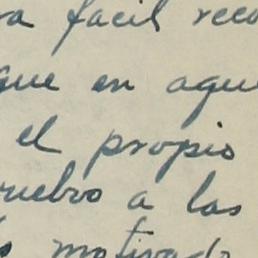 ra facil reco
que en aqu
el propio
ruebro a las
motivado